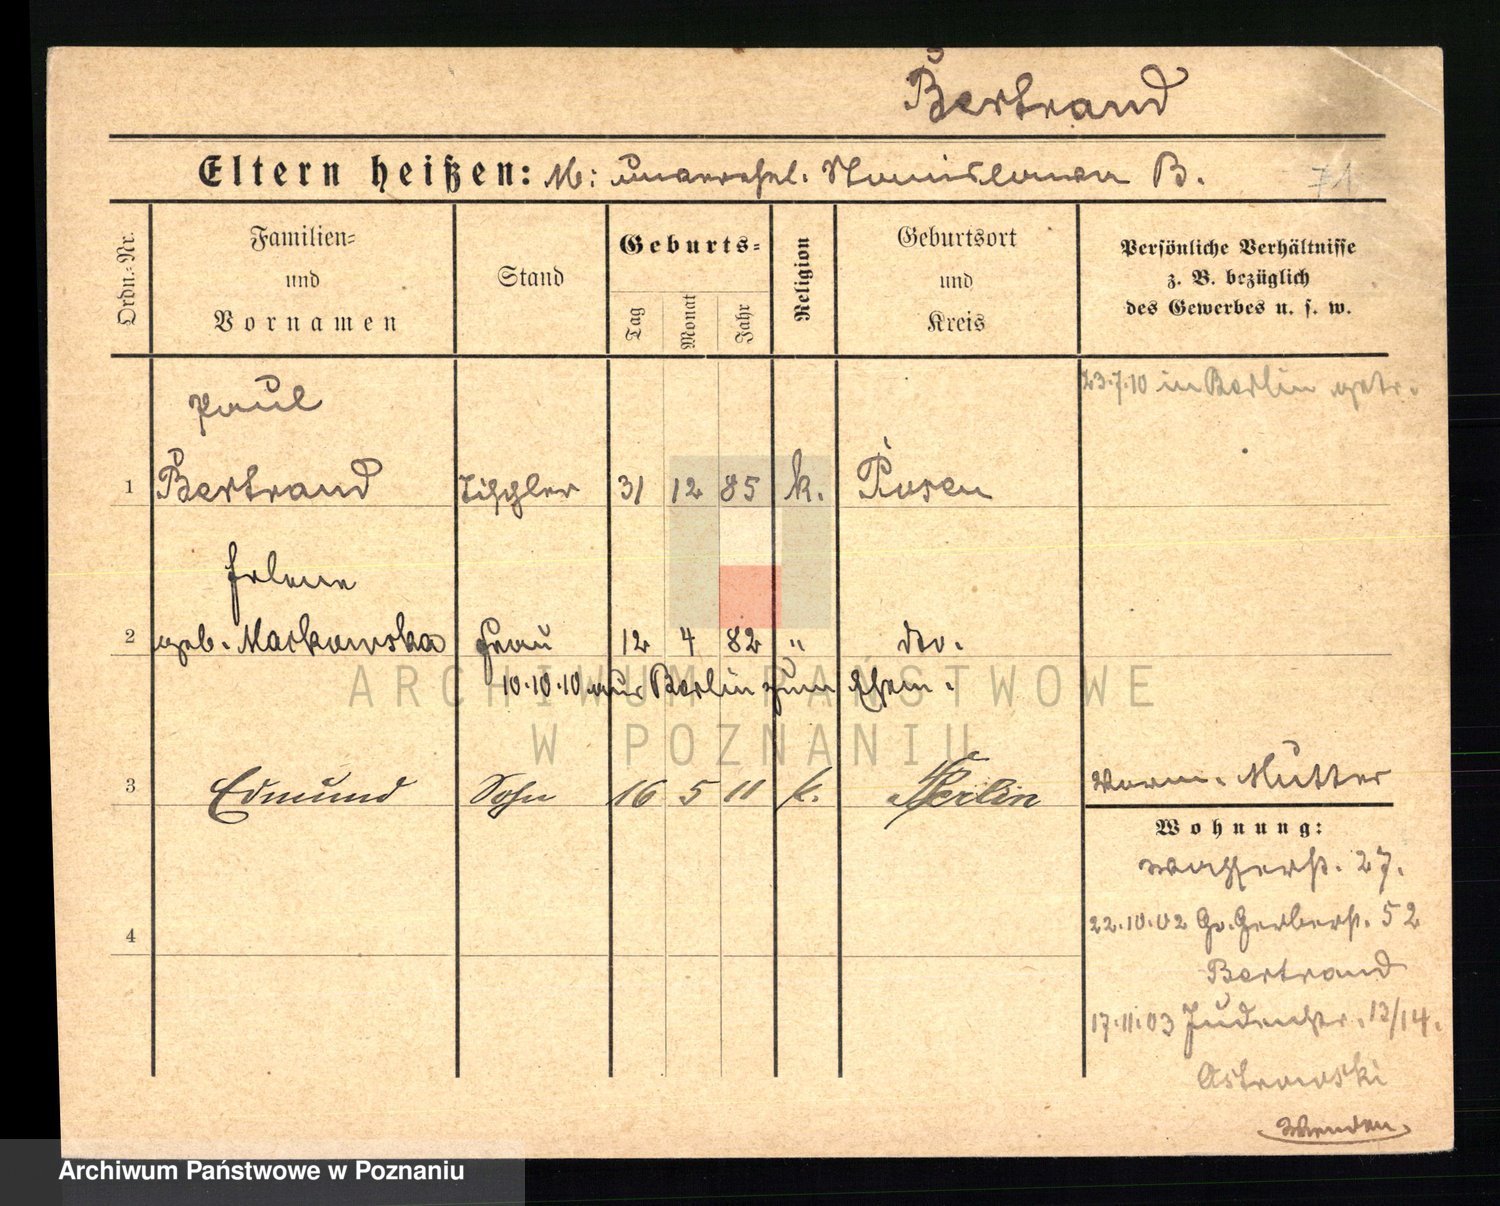 Bertrand
Eltern heißen: M: unverehel. Stanislawa B.
71
Ordn.-Nr.
Familien-
und
Vornamen
Stand
Geburts-
Tag
Monat
Jahr
Religion
Geburtsort
und
Kreis
Persönliche Verhältnisse
z. B. bezüglich
des Gewerbes u. s. w.
23.7.10 in Berlin getr.
Paul
1 Bertrand Tischler 31 12 85 k. Posen
Helene
2 geb. Markowska Frau 12 4 82 " do.
10.10.10 aus Berlin zum Ehem.
3 Edmund Sohn 16 5 11 k. Berlin
Vorm. Mutter
Wohnung:
27.
22.10.02 Gr. Gerberstr. 52
4
Bertrand
17.11.03 Judenstr. 13/14.
Ostrowski
Wenden.
ARCHIWUM PAŃSTWOWE
W POZNANIU
Archiwum Państwowe w Poznaniu